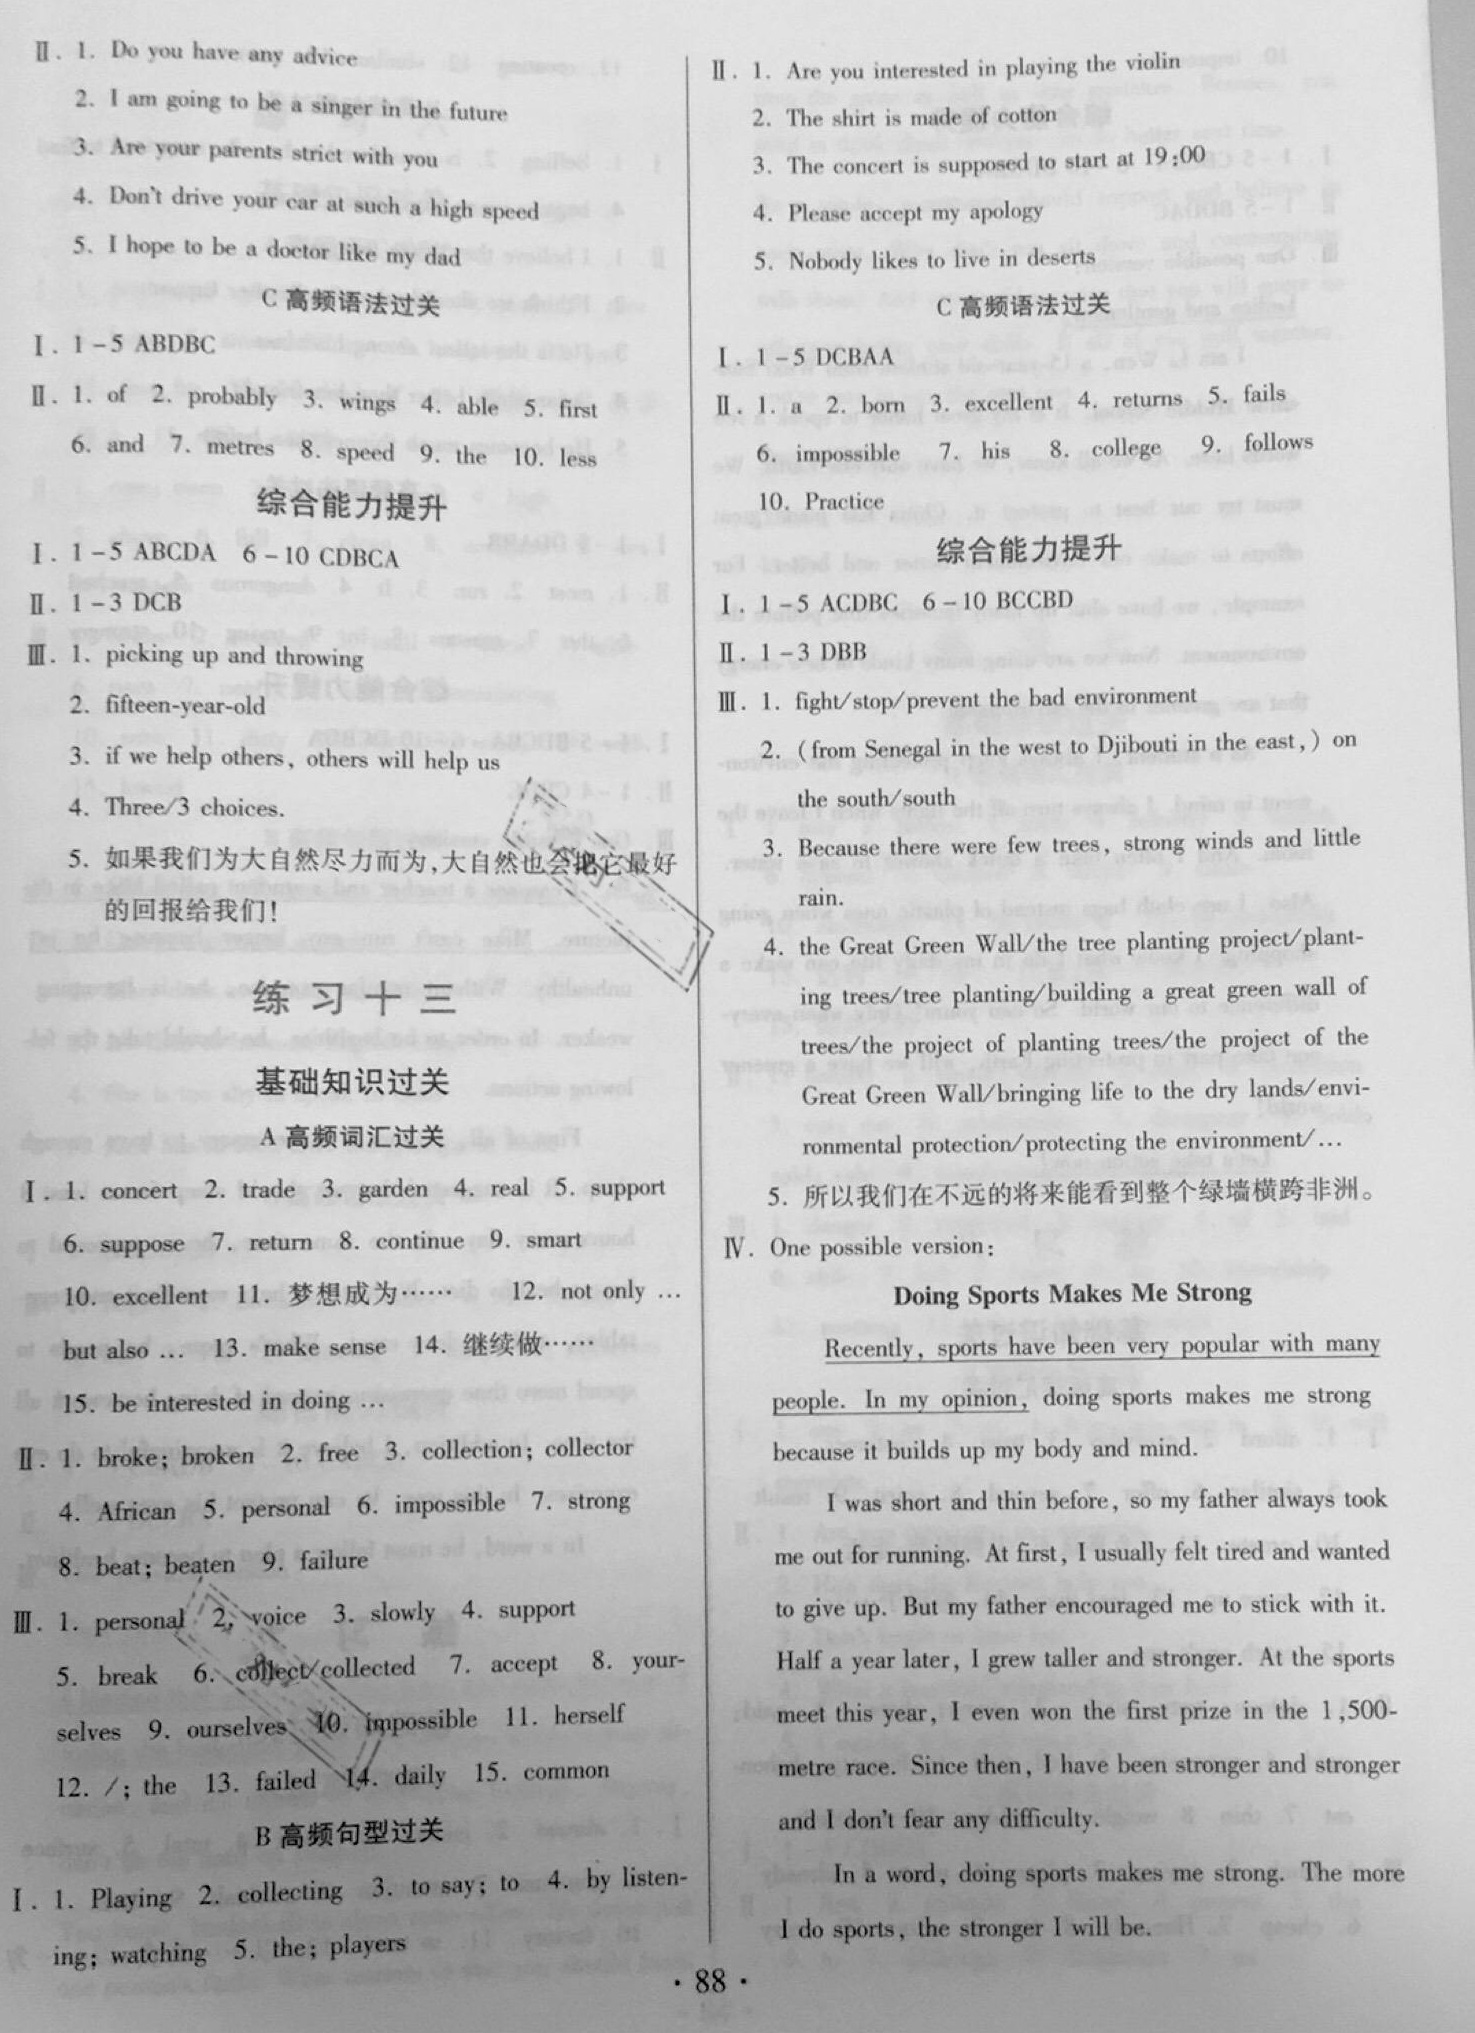 Ⅱ. 1. Do you have any advice
2. I am going to be a singer in the future
3. Are your parents strict with you
4. Don't drive your car at such a high speed
5. I hope to be a doctor like my dad
C 高频语法过关
Ⅰ. 1-5 ABDBC
Ⅱ. 1. of 2. probably 3. wings 4. able 5. first
6. and 7. metres 8. speed 9. the 10. less
综合能力提升
Ⅰ. 1-5 ABCDA 6-10 CDBCA
Ⅱ. 1-3 DCB
Ⅲ. 1. picking up and throwing
2. fifteen-year-old
3. if we help others, others will help us
4. Three/3 choices.
5. 如果我们为大自然尽力而为,大自然也会把它最好
的回报给我们!
练习十三
基础知识过关
A 高频词汇过关
Ⅰ. 1. concert 2. trade 3. garden 4. real 5. support
6. suppose 7. return 8. continue 9. smart
10. excellent 11. 梦想成为…… 12. not only …
but also … 13. make sense 14. 继续做……
15. be interested in doing …
Ⅱ. 1. broke; broken 2. free 3. collection; collector
4. African 5. personal 6. impossible 7. strong
8. beat; beaten 9. failure
Ⅲ. 1. personal 2. voice 3. slowly 4. support
5. break 6. collect/collected 7. accept 8. your-
selves 9. ourselves 10. impossible 11. herself
12. /; the 13. failed 14. daily 15. common
B 高频句型过关
Ⅰ. 1. Playing 2. collecting 3. to say; to 4. by listen-
ing; watching 5. the; players
Ⅱ. 1. Are you interested in playing the violin
2. The shirt is made of cotton
3. The concert is supposed to start at 19:00
4. Please accept my apology
5. Nobody likes to live in deserts
C 高频语法过关
Ⅰ. 1-5 DCBAA
Ⅱ. 1. a 2. born 3. excellent 4. returns 5. fails
6. impossible 7. his 8. college 9. follows
10. Practice
综合能力提升
Ⅰ. 1-5 ACDBC 6-10 BCCBD
Ⅱ. 1-3 DBB
Ⅲ. 1. fight/stop/prevent the bad environment
2. (from Senegal in the west to Djibouti in the east,) on
the south/south
3. Because there were few trees, strong winds and little
rain.
4. the Great Green Wall/the tree planting project/plant-
ing trees/tree planting/building a great green wall of
trees/the project of planting trees/the project of the
Great Green Wall/bringing life to the dry lands/envi-
ronmental protection/protecting the environment/…
5. 所以我们在不远的将来能看到整个绿墙横跨非洲。
Ⅳ. One possible version:
Doing Sports Makes Me Strong
Recently, sports have been very popular with many
people. In my opinion, doing sports makes me strong
because it builds up my body and mind.
I was short and thin before, so my father always took
me out for running. At first, I usually felt tired and wanted
to give up. But my father encouraged me to stick with it.
Half a year later, I grew taller and stronger. At the sports
meet this year, I even won the first prize in the 1,500-
metre race. Since then, I have been stronger and stronger
and I don't fear any difficulty.
In a word, doing sports makes me strong. The more
I do sports, the stronger I will be.
· 88 ·